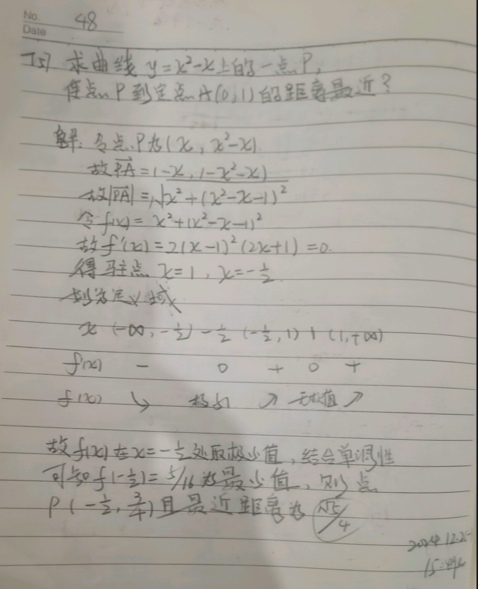 No. 48
Date
求曲线 y=x²-x上的一点P,
使点P到定点A(0,1)的距离最近?
解: 令点P为(x, x²-x)
故PA=(-x, 1-x²-x)
故|PA|=√x²+(x²-x-1)²
令f(x)=x²+(x²-x-1)²
故f'(x)=2(x-1)²(2x+1)=0
得驻点 x=1, x=-1/2
划分定义域
x (-∞,-1/2) -1/2 (-1/2,1) 1 (1,+∞)
f'(x) - 0 + 0 +
f(x) ↘ 极小 ↗ 无极值 ↗
故f(x)在x=-1/2处取极小值,结合单调性
可知f(-1/2)=5/16为最小值,则点
P(-1/2,3/4)且最近距离为 √5/4
2024.12.2